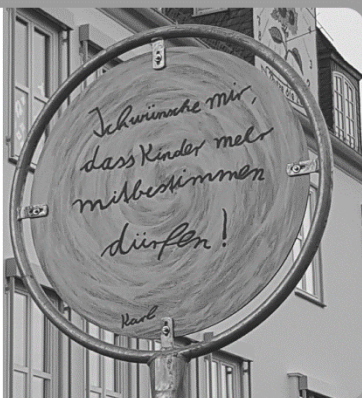 Ich wünsche mir,
dass Kinder mehr
mitbestimmen
dürfen!
Karl